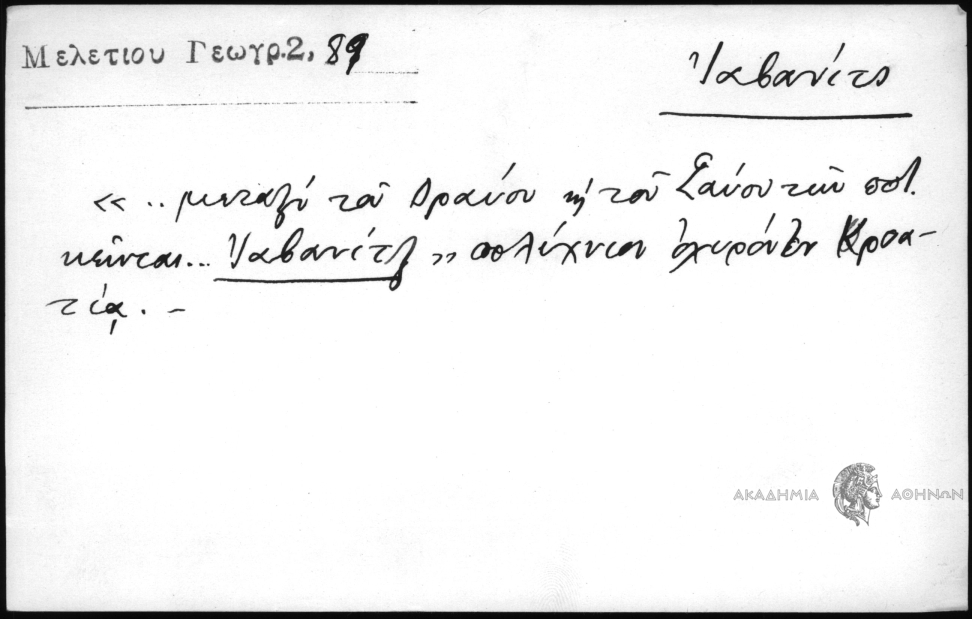 Μελετίου Γεωγρ.2, 89
Ἰαβανίτς
«.. μεταξὺ τοῦ Δραύου κὶ τοῦ Σαύου τῶν ποτ.
κεῖνται... Ἰαβανίτζ,, πολίχνιον ὀχυρὸν ἐν Κροα-
τίᾳ. -
ΑΚΑΔΗΜΙΑ ΑΘΗΝΩΝ